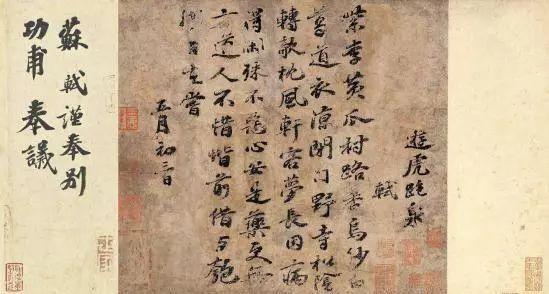 遊虎跑泉
軾
紫李黃瓜村路香烏紗白
葛道衣涼閉門野寺松陰
轉欹枕風軒客夢長因病
得閑殊不惡心安是藥更無
方道人不惜堦前借与匏
樽自在嘗
五月初
蘇軾謹奉別
功甫奉議